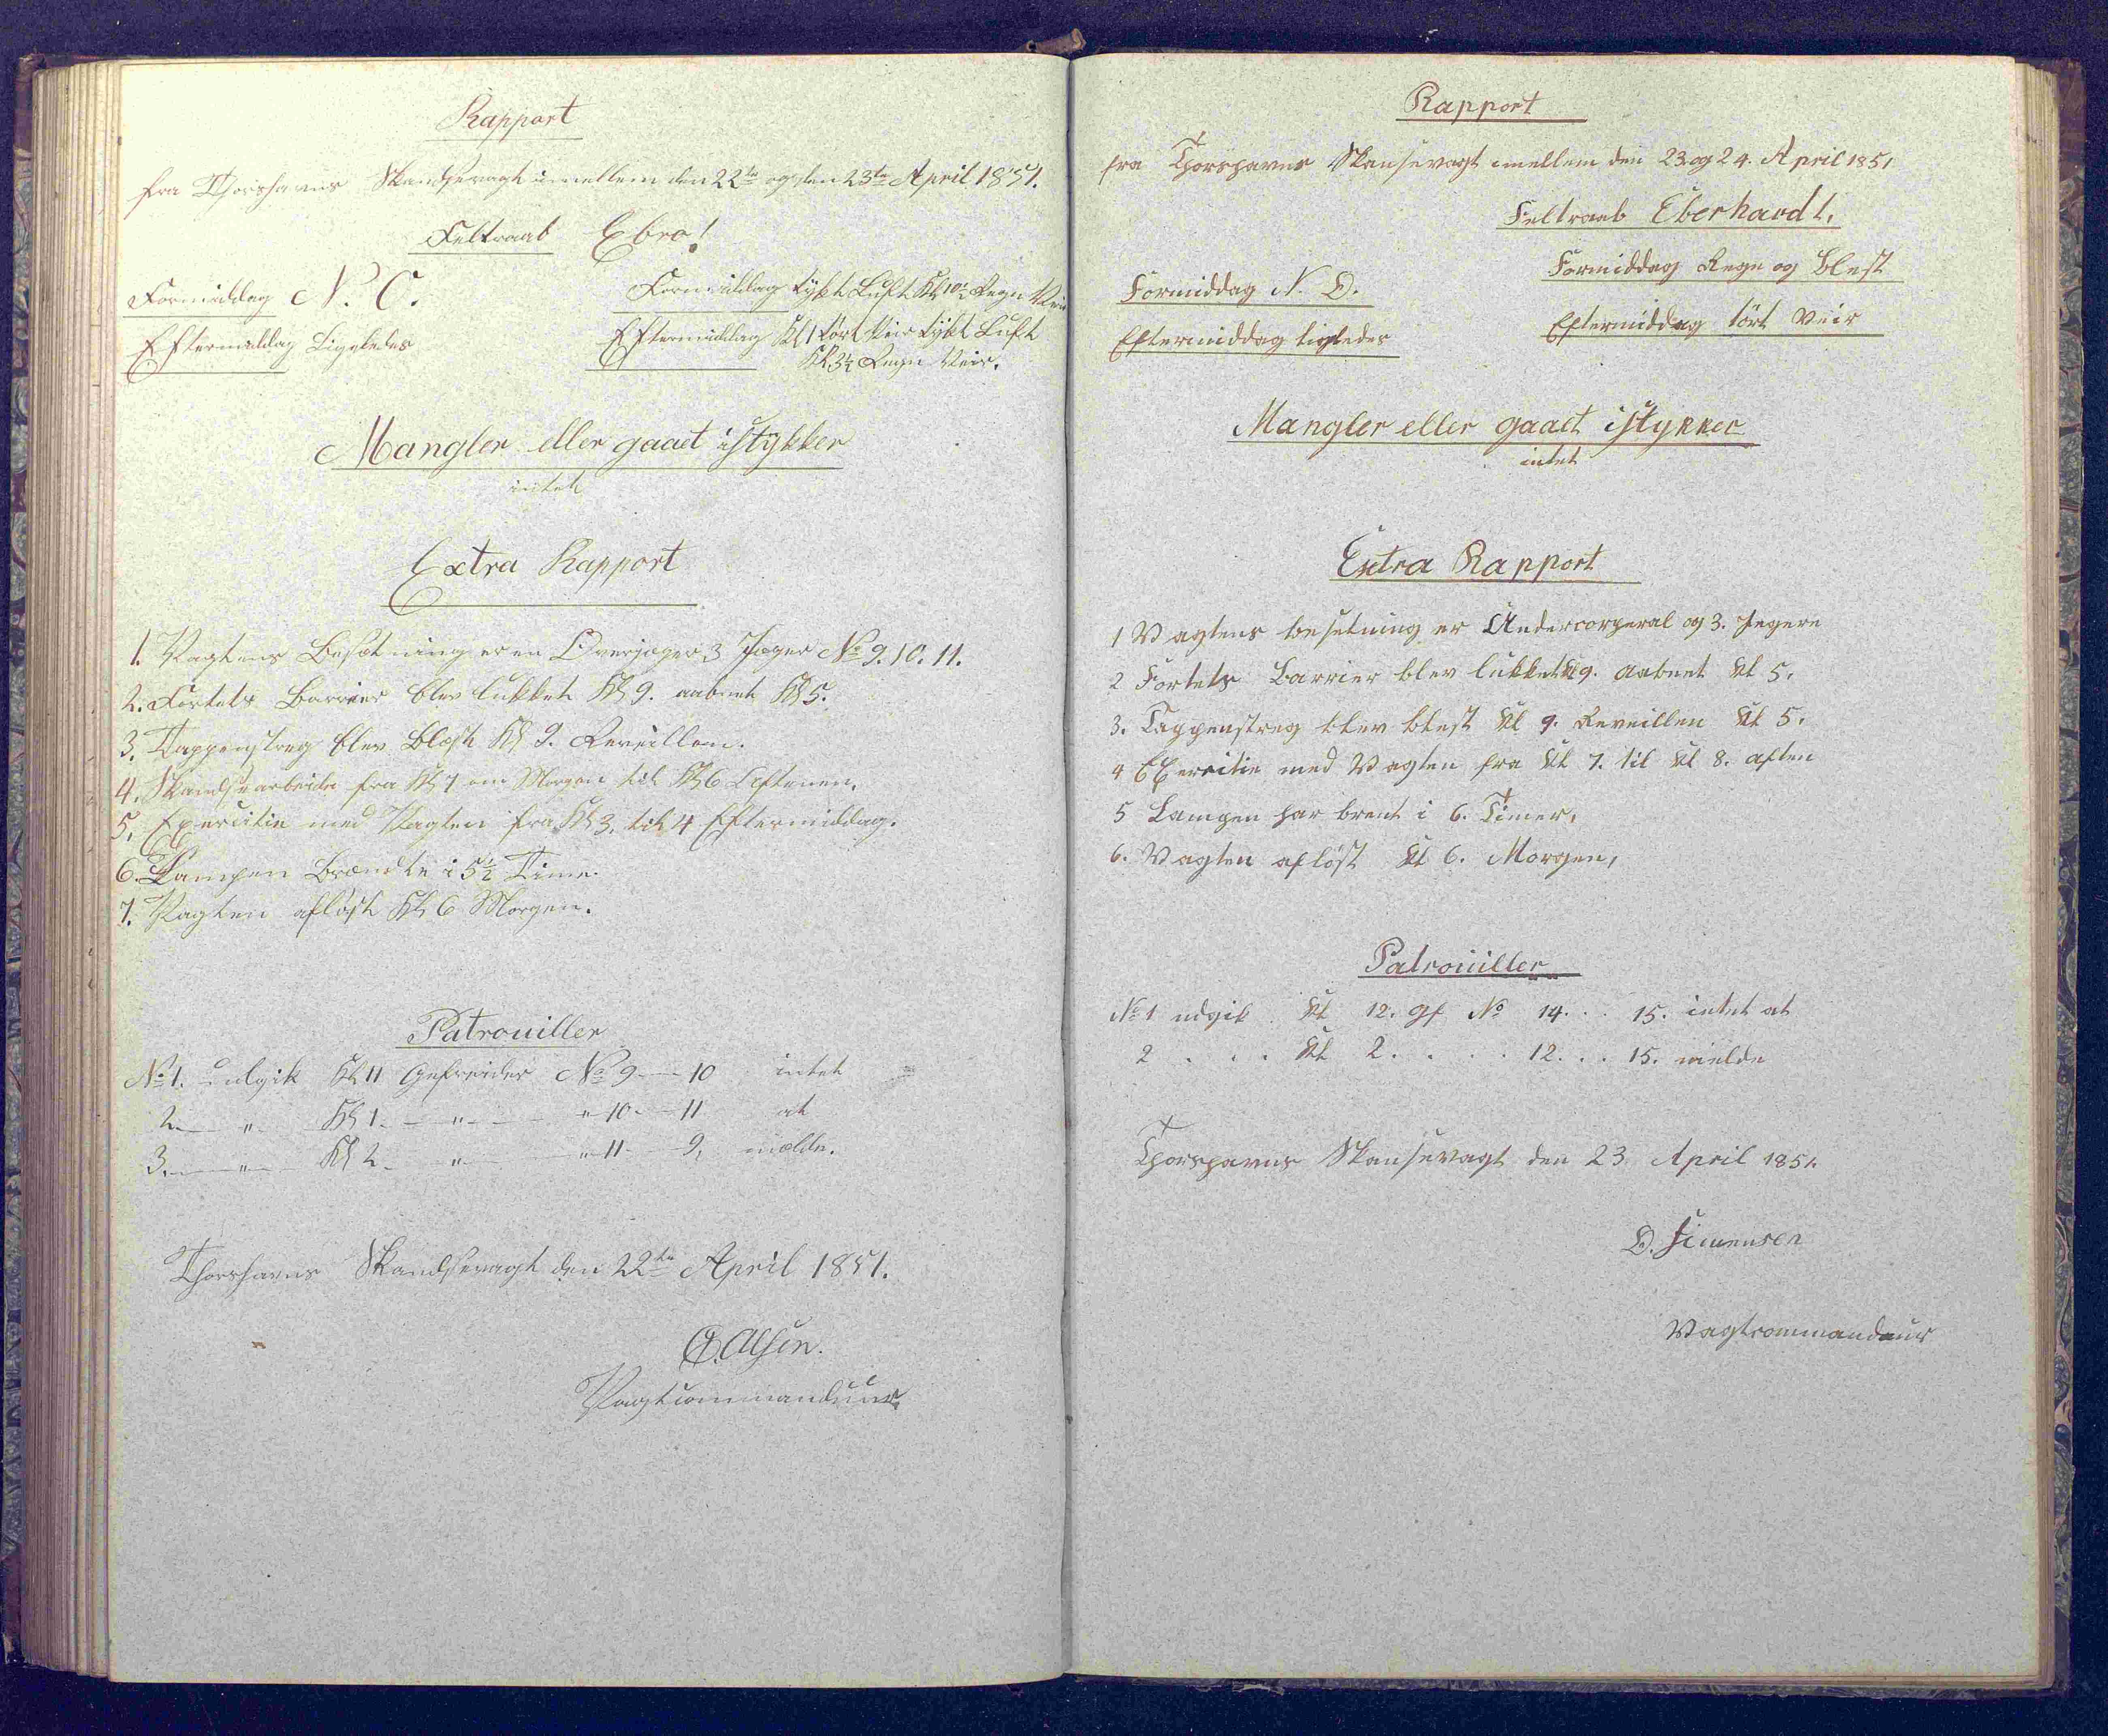 Rapport
fra Thorshavns Skandsevagt imellem den 22de og den 23de April 1851.
Feltraab Ebro!
Formiddag N. O.
Formiddag tykt Luft Kl 10½ Regn Veir
Eftermiddag Ligeledes
Eftermiddag Kl 1 tørt Veir tykt Luft
Kl 3½ Regn Veir.
Mangler eller gaaet istykker
intet
Extra Rapport
1. Vagtens Besætning er en Overjæger 3 Jæger No 9. 10. 11.
2. Fortets Barrier blev lukket Kl 9. aabnet Kl 5.
3. Tappenstreg blev Blæst Kl 9. Reveillen.
4. Skandsearbeide fra Kl 7 om Morgen til Kl 6 Aftenen.
5. Exercitie med Vagten fra Kl 3, til 4 Eftermiddag.
6. Lampen Brændte i 5½ Time.
7. Vagten afløst Kl 6 Morgen.
Patrouiller
No 1. udgik Kl 11 Gefreider No 9 — 10 intet
2 — " — Kl 1. — " — " 10 — 11 at
3. — " — Kl 2 — " — " 11 — 9, mælde.
Thorshavns Skandsevagt den 22de April 1851.
O. Olsen.
Vagtcommandeur
Rapport
fra Thorshavns Skansevagt imellem den 23 og 24. April 1851
Feltraab Eberhardt.
Formiddag Regn og Blest
Formiddag N. O.
Eftermiddag tört Veir
Eftermiddag ligledes
Mangler eller gaaet istykker
intet
Extra Rapport
1 Vagtens besetning er Undercorperal og 3. Jegere
2 Fortets Barrier blev lukket Kl 9. aabnet Kl 5.
3. Tappenstreg blev blest Kl 9. Reveillen Kl 5.
4 Exercitie med Vagten fra Kl 7. til Kl 8. aften
5 Lampen har brent i 6. Timer,
6. Vagten aflöst Kl 6. Morgen,
Patrouiller
No 1 udgik Kl 12. Gf No 14. . . 15. intet at
2 . . . Kl 2. . . . 12. . . 15. melde
Thorshavns Skansevagt den 23 April 1851.
D. Simensen
Vagtcommandeur